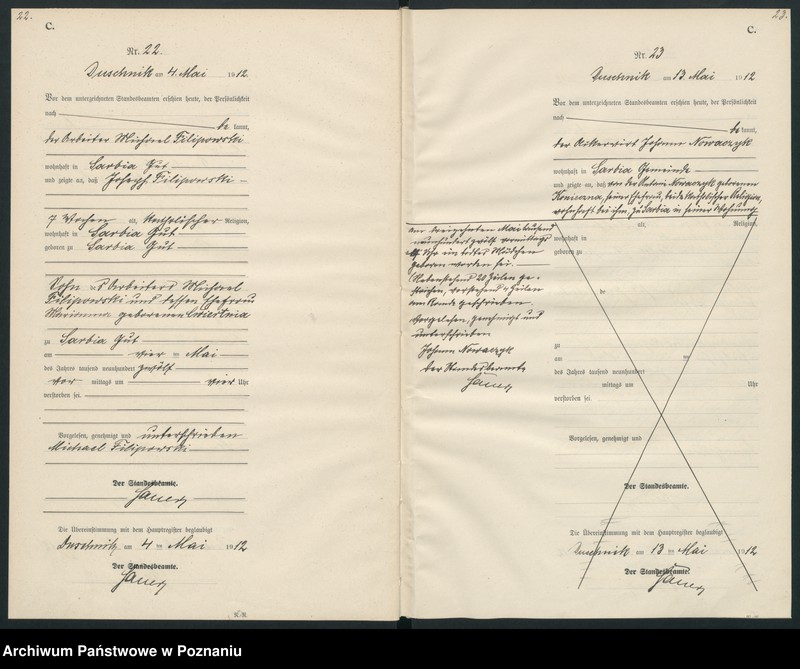 22.
C.
Nr. 22
Duschnik am 4 Mai 1912
Vor dem unterzeichneten Standesbeamten erschien heute, der Persönlichkeit
nach
be kannt,
der Arbeiter Michael Filipowski
wohnhaft in Sarbia Gut
und zeigte an, daß Joseph Filipowski
7 Wochen alt, katholischer Religion,
wohnhaft in Sarbia Gut
geboren zu Sarbia Gut
Sohn des Arbeiters Michael
Filipowski und dessen Ehefrau
Marianna geborenen Cwiertnia
zu Sarbia Gut
am vier ten Mai
des Jahres tausend neunhundert zwölf
vor mittags um vier Uhr
verstorben sei.
Vorgelesen, genehmigt und unterschrieben
Michael Filipowski
Der Standesbeamte.
Die Übereinstimmung mit dem Hauptregister beglaubigt
Duschnik, am 4 ten Mai 1912
Der Standesbeamte.
23.
C.
Nr. 23
Duschnik am 13. Mai 1912
Vor dem unterzeichneten Standesbeamten erschien heute, der Persönlichkeit
nach
be kannt,
der Ackerwirt Johann Nowaczyk
wohnhaft in Sarbia Gemeinde
und zeigte an, daß von der Antoni Nowaczyk geborenen
Konieczna, seiner Ehefrau, beide katholischer Religion,
wohnhaft bei ihm, zu Sarbia in seiner Wohnung
am dreizehnten Mai tausend
neunhundert zwölf vormittags
Uhr ein totes Mädchen
geboren worden sei.
Nebenstehend 20 Zeilen ge-
strichen, vorstehend 4 Zeilen
am Rande geschrieben.
Vorgelesen, genehmigt und
unterschrieben
Johann Nowaczyk
Der Standesbeamte
alt, Religion,
wohnhaft in
geboren zu
de
zu
am ten
des Jahres tausend neunhundert
mittags um Uhr
verstorben sei.
Vorgelesen, genehmigt und
Der Standesbeamte.
Die Übereinstimmung mit dem Hauptregister beglaubigt
Duschnik am 13 ten Mai 1912
Der Standesbeamte.
Archiwum Państwowe w Poznaniu